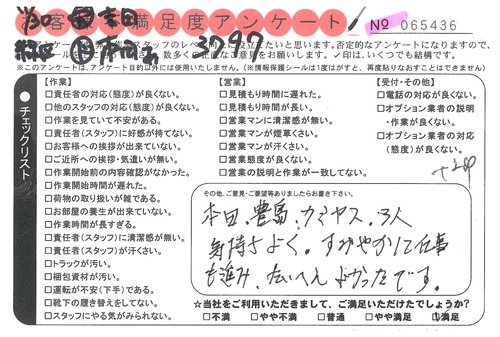 お客様満足度アンケート
No 065436
11/30
本田
3797
※このアンケートは、アンケート目的以外には使用いたしません。(※情報保護シールは1度はがすと、再度貼りなおすことはできません)
チェックリスト
【作業】
□責任者の対応(態度)が良くない。
□他のスタッフの対応(態度)が良くない。
□作業を見ていて不安がある。
□責任者(スタッフ)に好感が持てない。
□お客様への挨拶が出来ていない。
□ご近所への挨拶・気遣いが無い。
□作業開始前の内容確認がなかった。
□作業開始時間が遅れた。
□荷物の取り扱いが雑である。
□お部屋の養生が出来ていない。
□作業時間が長すぎる。
□責任者(スタッフ)に清潔感が無い。
□責任者(スタッフ)が汗くさい。
□トラックが汚い。
□梱包資材が汚い。
□運転が不安(下手)である。
□靴下の履き替えをしてない。
□スタッフにやる気がみられない。
【営業】
□見積もり時間に遅れた。
□見積もり時間が長い。
□営業マンに清潔感が無い。
□営業マンが煙草くさい。
□営業マンが汗くさい。
□営業態度が良くない。
□営業の説明と作業が一致してない。
【受付・その他】
□電話の対応が良くない。
□オプション業者の説明
・作業が良くない。
□オプション業者の対応
(態度)が良くない。
その他、ご意見・ご要望等ありましたらお書き下さい。
本田、豊島、カミヤス、3人
気持さよく。すみやかに仕事
も進み、たいへんよかったです。
☆当社をご利用いただきまして、ご満足いただけたでしょうか?
□不満 □やや不満 □普通 □やや満足 ☑満足